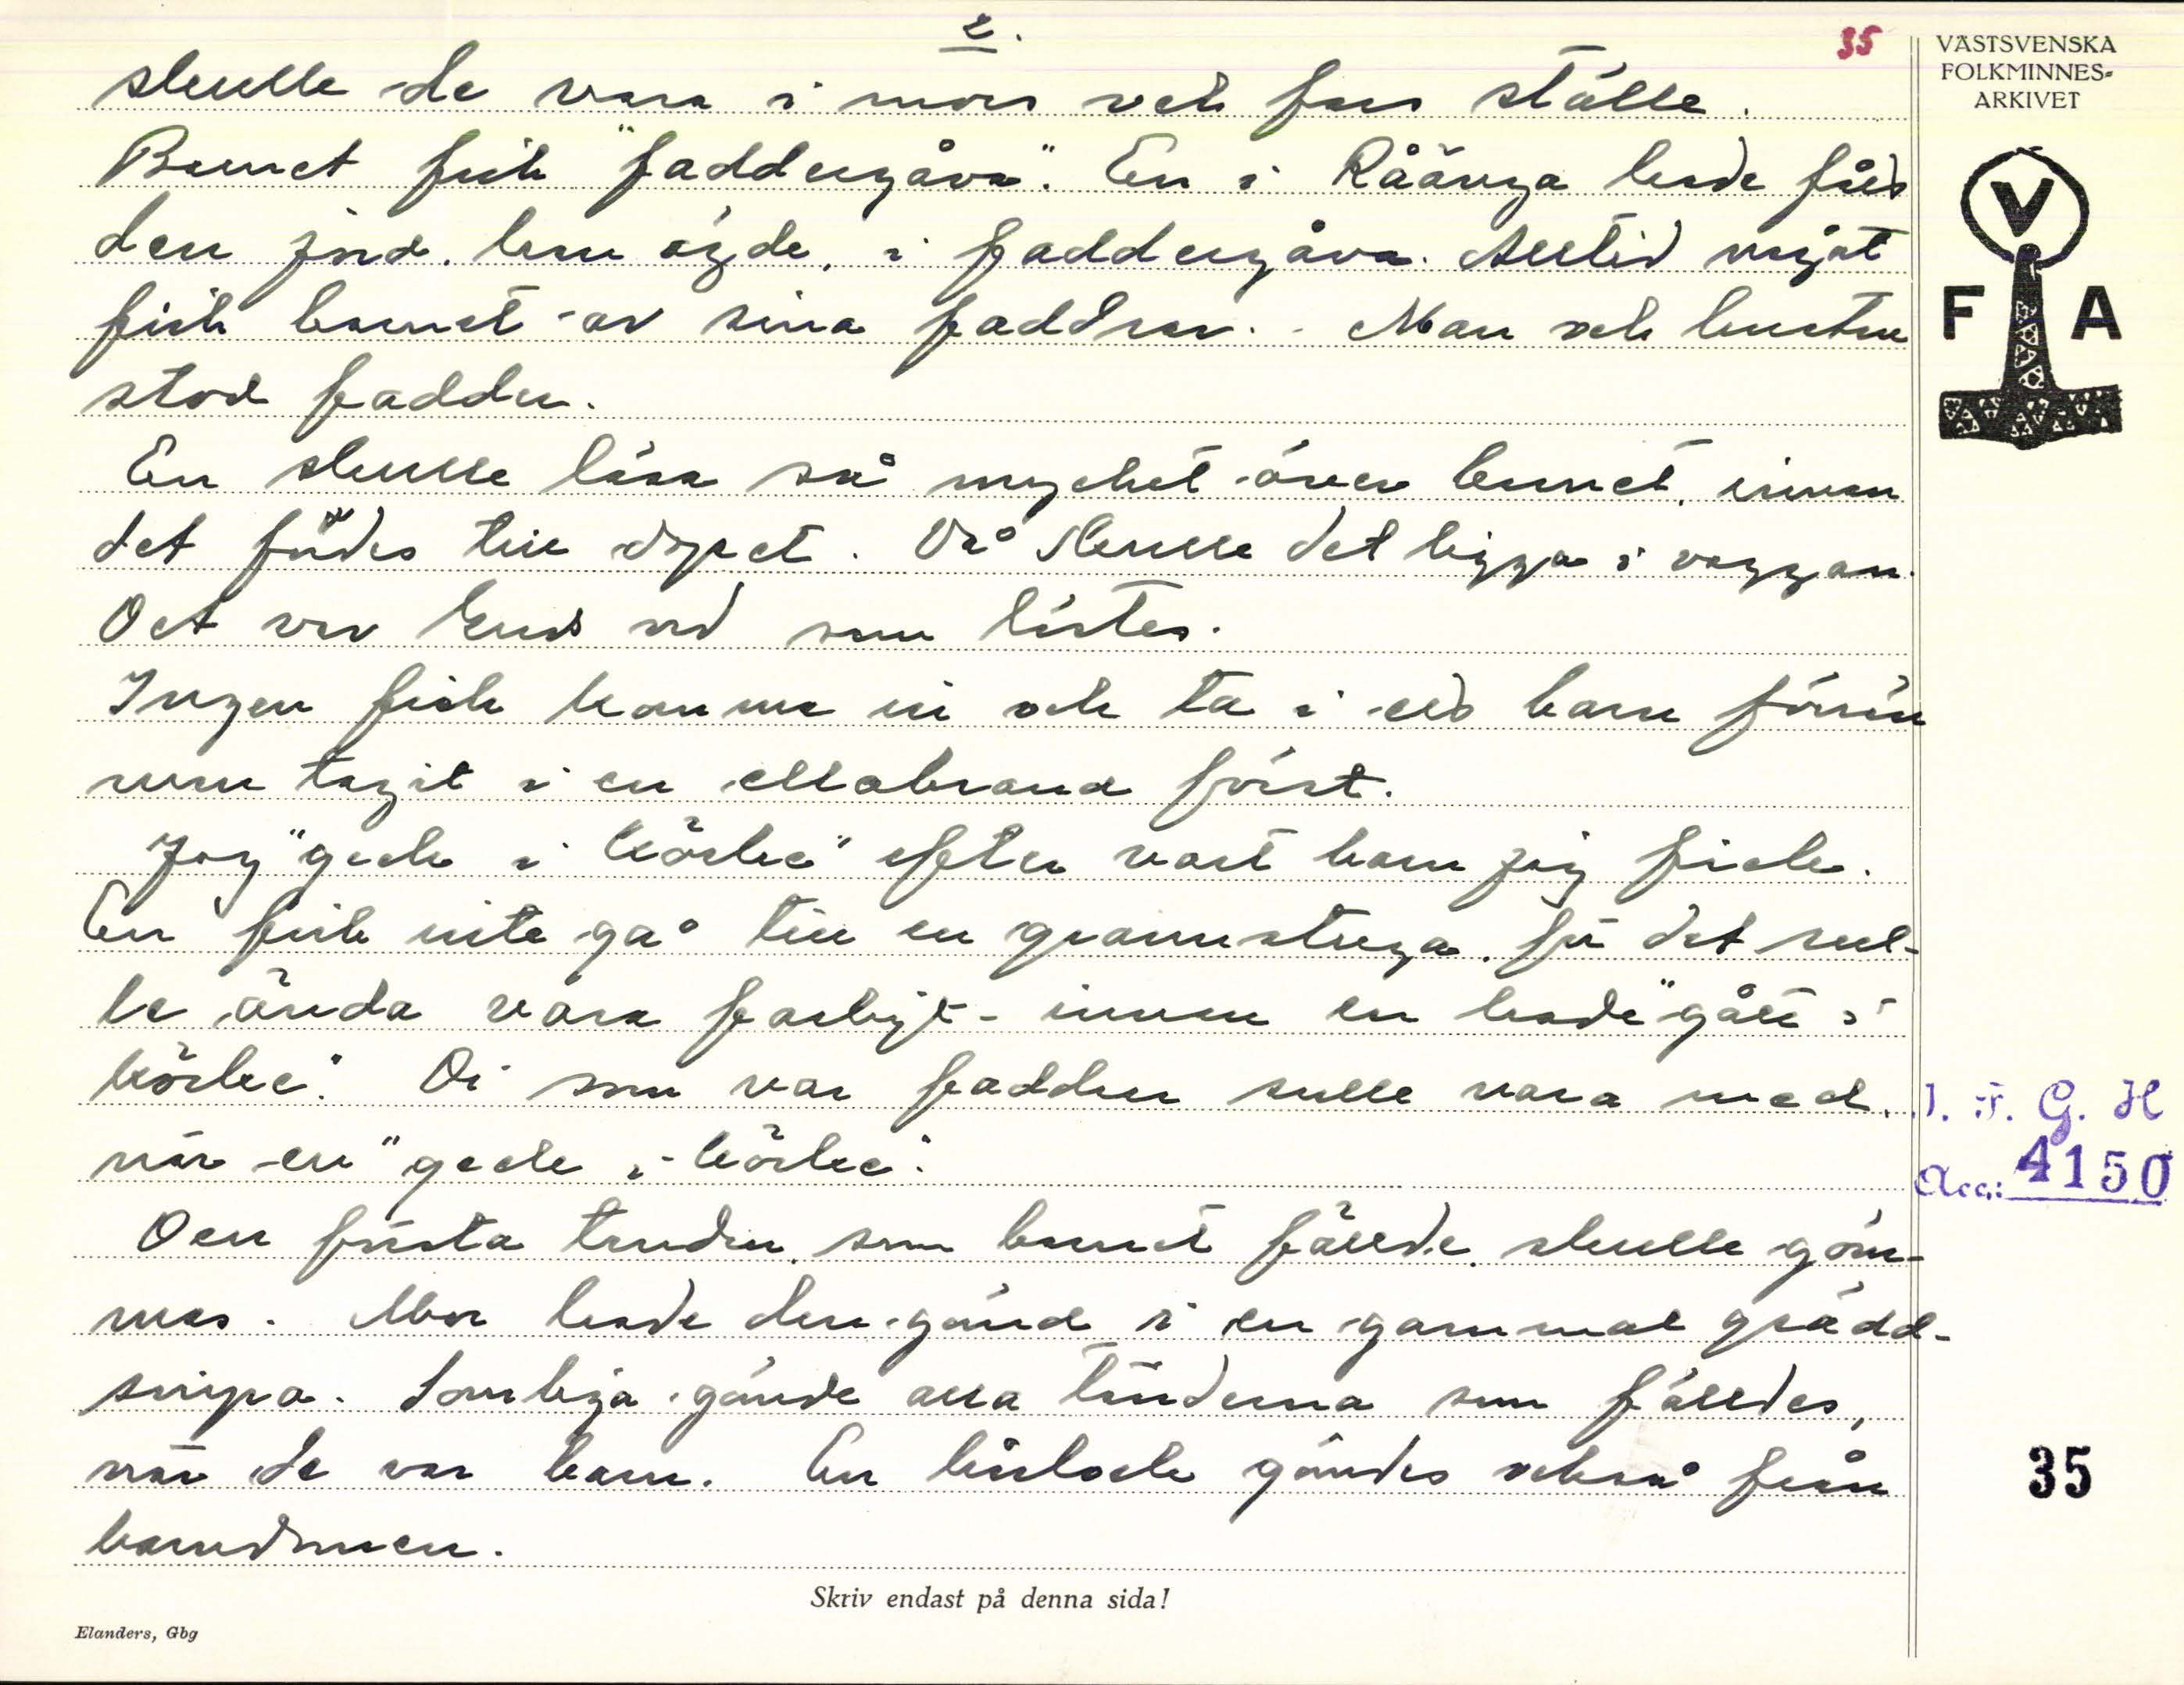 2.
35
skulle de vara i mors och fars ställe.
Barnet fick "faddergåva". En i Råånga hade fått
den jord, han ägde, i faddergåva. Alltid något
fick barnet av sina faddrar. - Man och hustru
stod fadder.
En skulle läsa så mycket över barnet, innan
det fördes till dopet. Då skulle det ligga i vaggan.
Det var Guds ord som lästes.
Ingen fick komma in och ta i ens barn förrän
man tagit i en ellabrand först.
Jag "geck i körke" efter vart barn jag fick.
En fick inte gå till en grannstuga, för det sul-
le ända vara farligt - innan en hade "gått i
körke". Di som var faddrar sulle vara med,
när en "geck i körke".
Den första tanden, som barnet fällde, skulle göm-
mas. Mor hade den gömd i en gammal grädd-
snipa. Somliga gömde alla tänderna som fälldes,
när de var barn. En hårlock gömdes också från
barndomen.
Skriv endast på denna sida!
Elanders, Gbg
VÄSTSVENSKA
FOLKMINNES-
ARKIVET
V
F A
I. F. G. H
Acc.: 4150
35